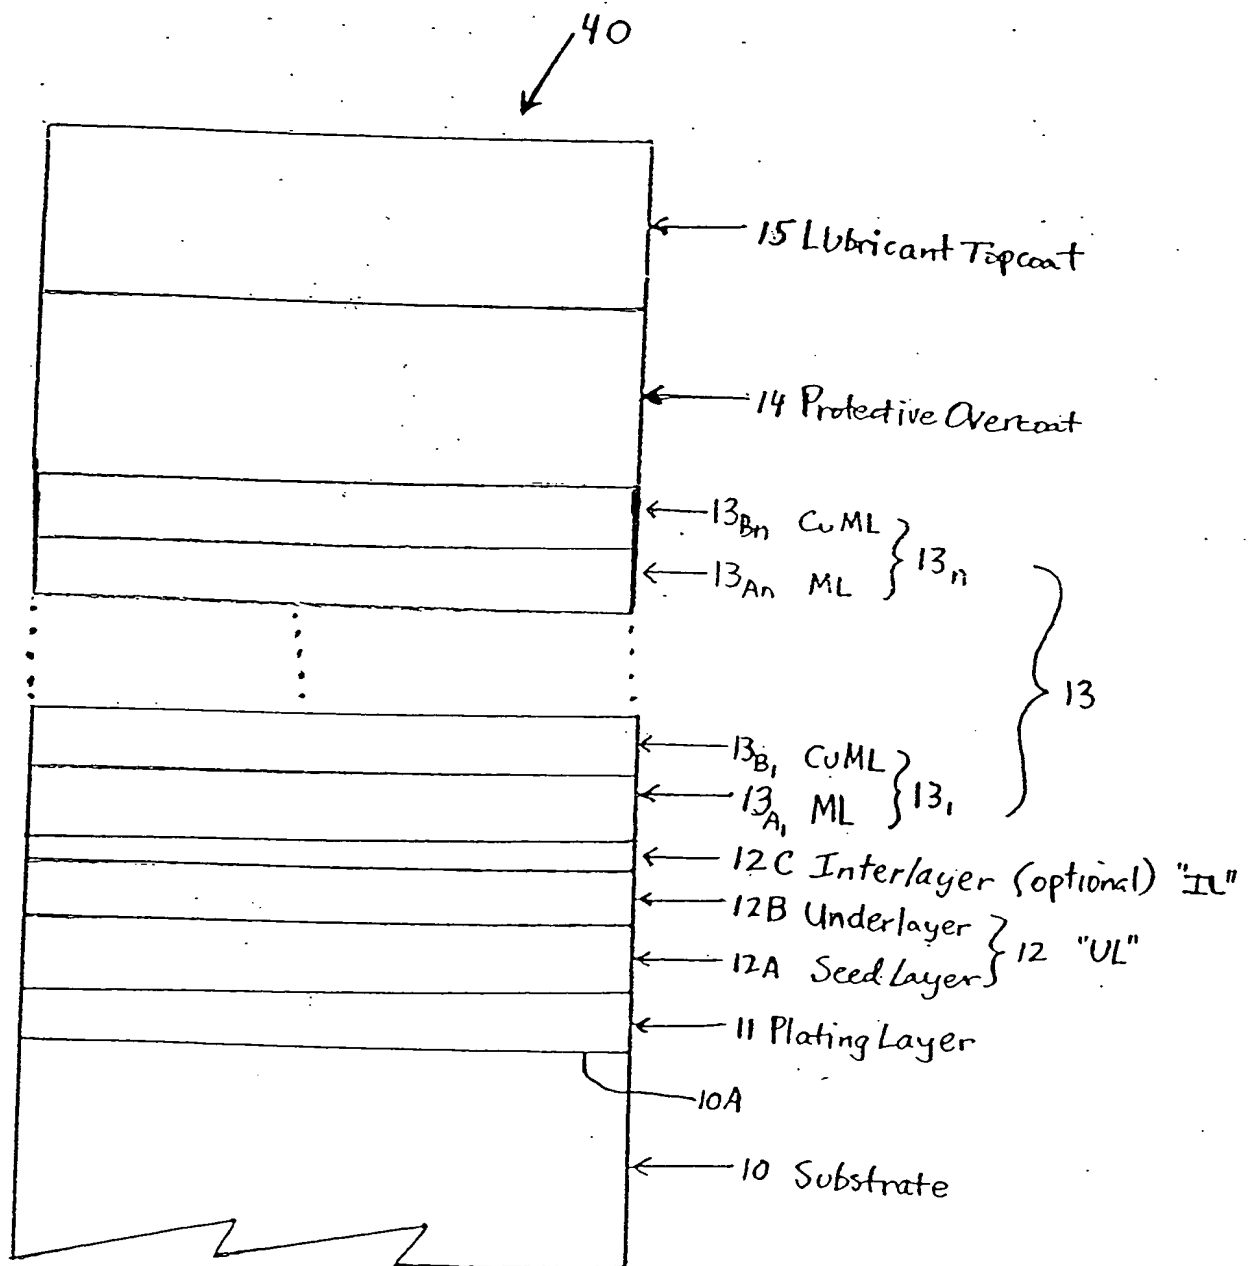 40
15 Lubricant Topcoat
14 Protective Overcoat
13Bn CuML
13n
13An ML
13
13B1 CuML
131
13A1 ML
12C Interlayer (optional) "IL"
12B Underlayer
12 "UL"
12A Seed Layer
11 Plating Layer
10A
10 Substrate